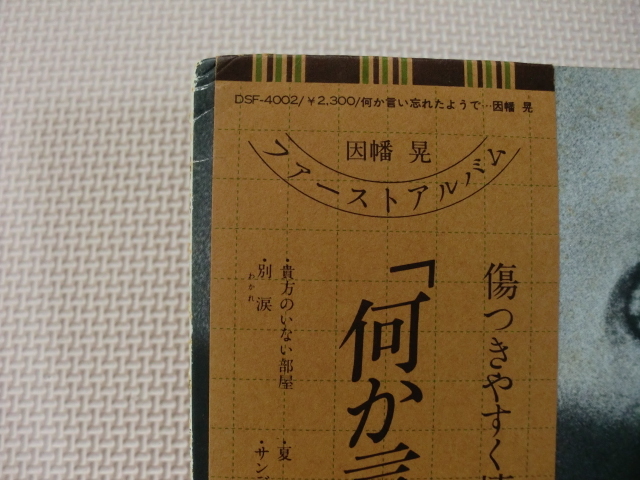 DSF-4002/¥2,300/何か言い忘れたようで…因幡 晃
因幡 晃
ファーストアルバム
傷つきやすく
「何か言
・貴方のいない部屋
・夏
・別涙
わかれ
・サン